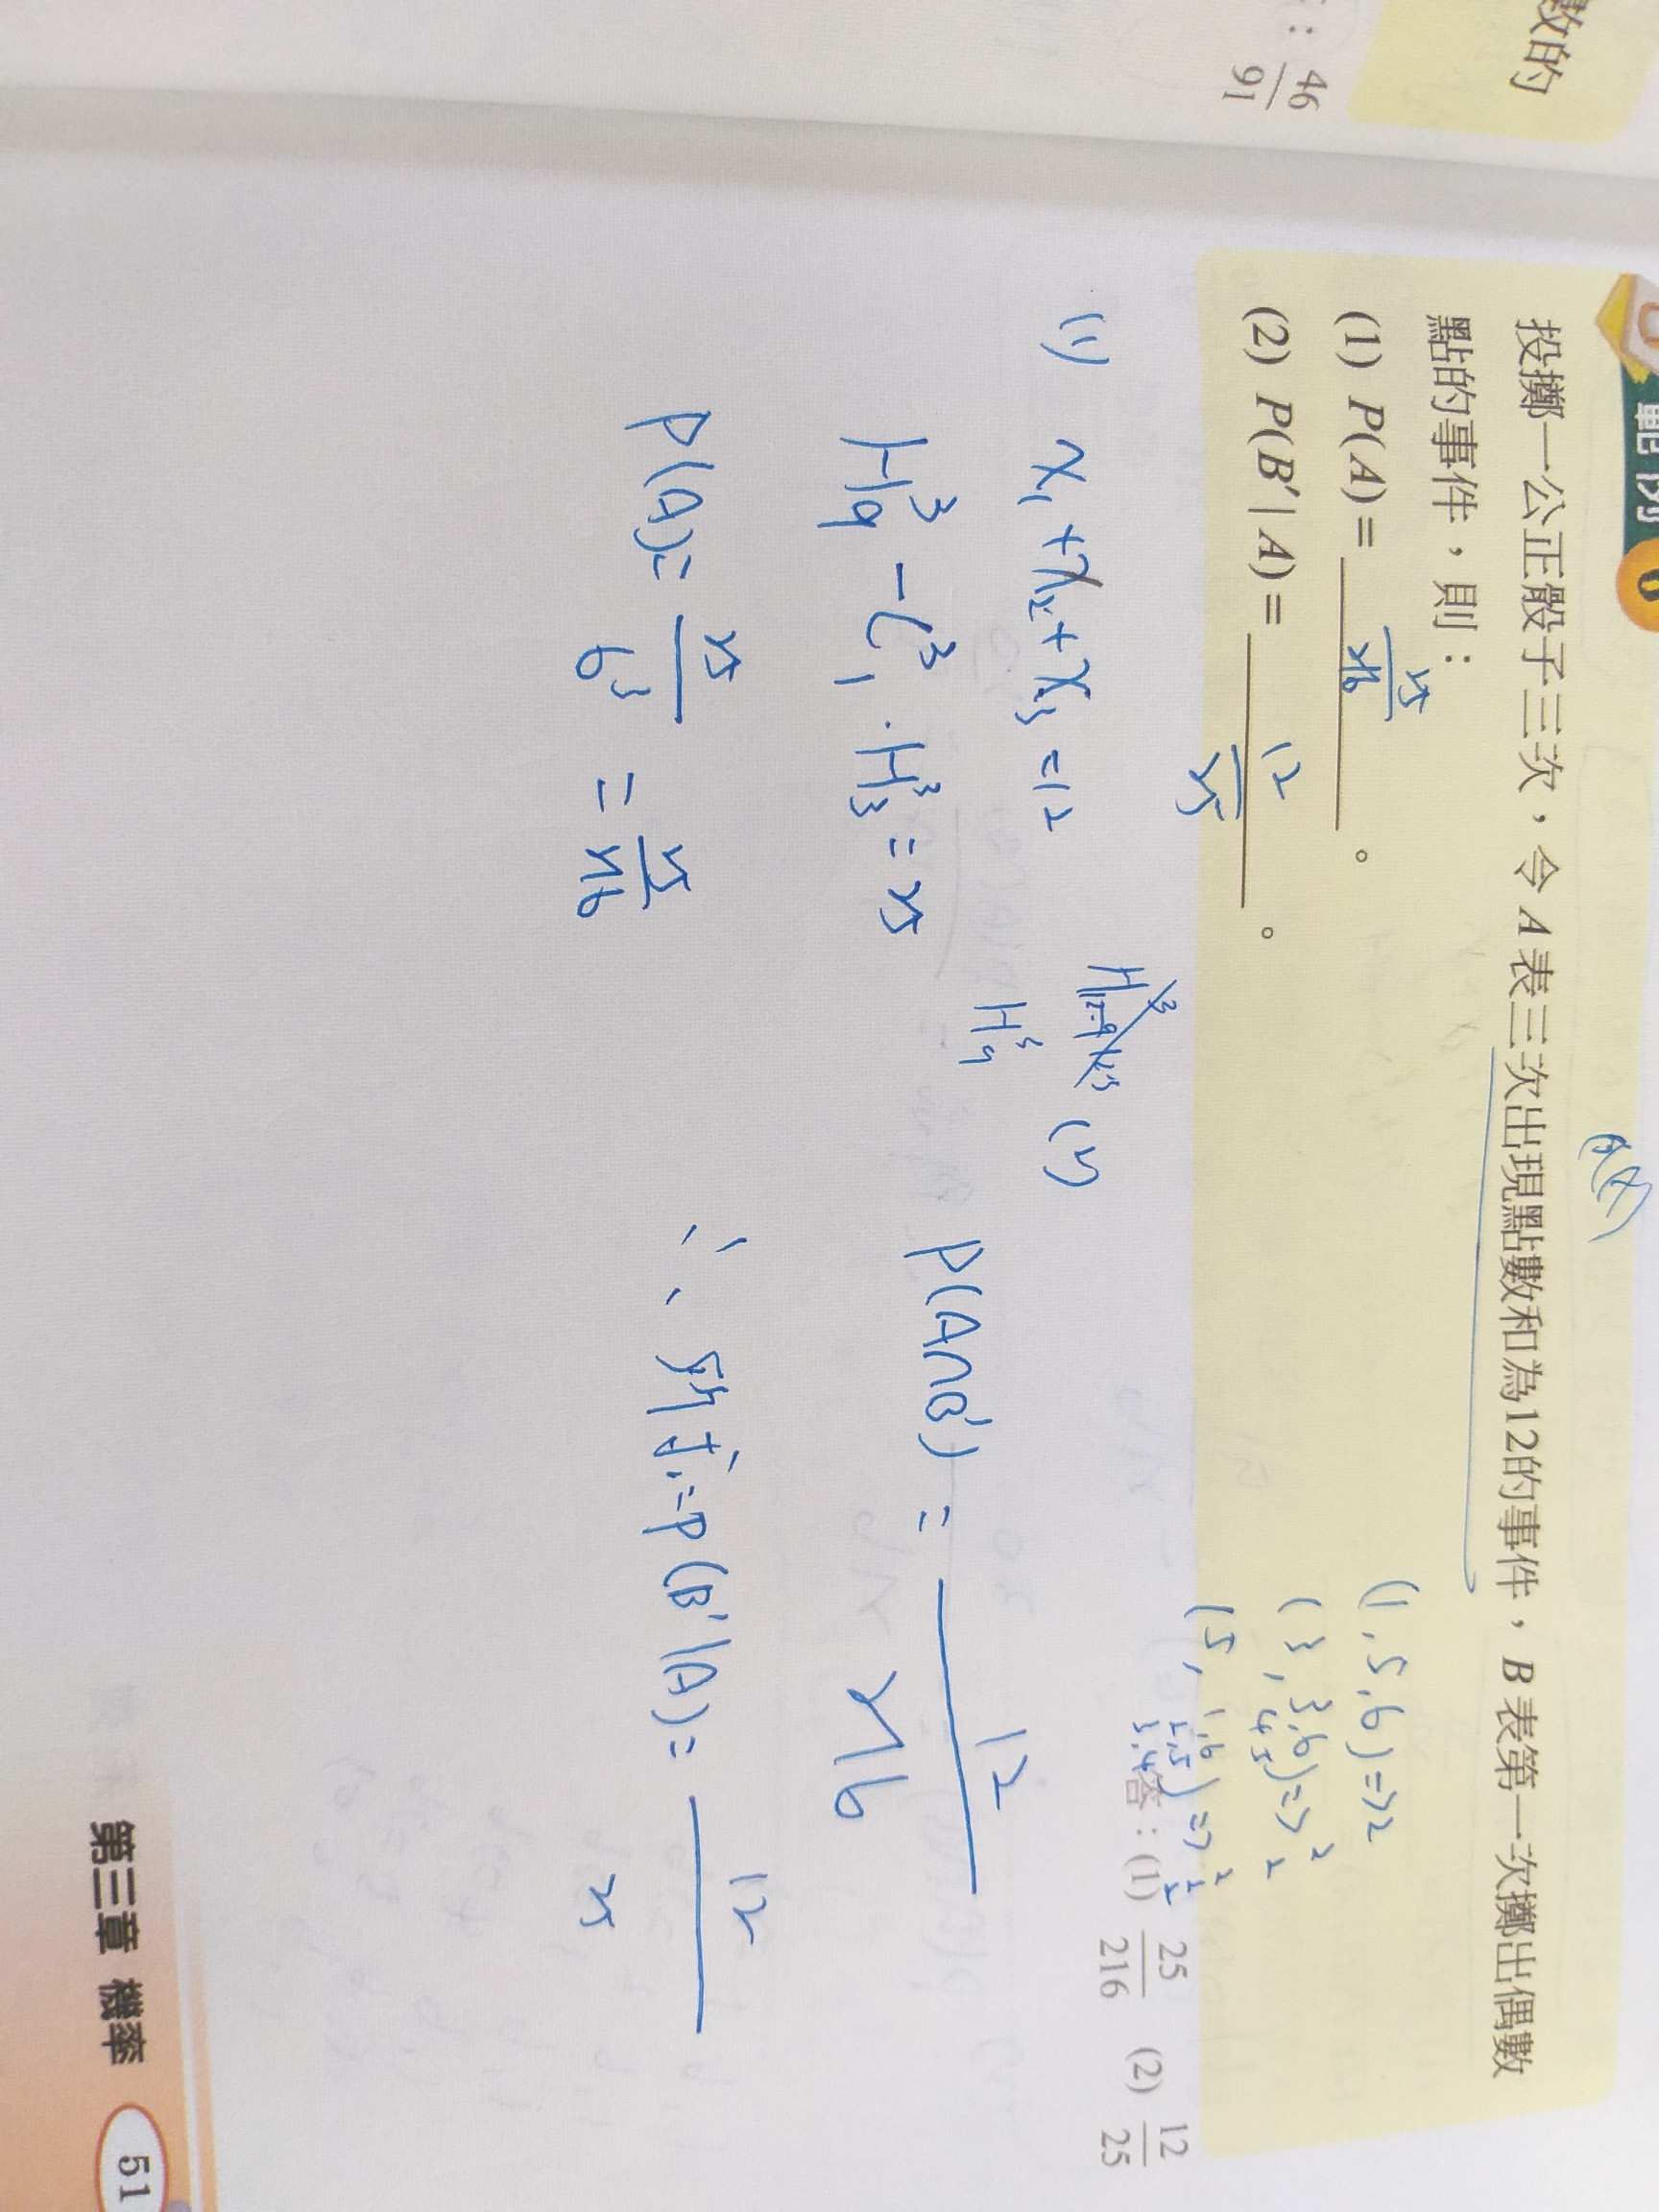 數的
: 46/91
範例 6
投擲一公正骰子三次，令 A 表三次出現點數和為12的事件，B 表第一次擲出偶數
點的事件，則：
(1) P(A) = 25/216 。
(2) P(B′|A) = 12/25 。
(1,5,6)=>2
(3, 3,6)=>2
4,5 2
(5, 1,6)=>2
2,5 2
3,4 2
答：(1) 25/216 (2) 12/25
(1) x₁+x₂+x₃=12
H³₉ - C³₁·H³₃ = 25
P(A) = 25/6³ = 25/216
H³₉
(2) P(A∩B′) = 12/216
∴ 所求=P(B′|A) = 12/25
第三章 機率 51